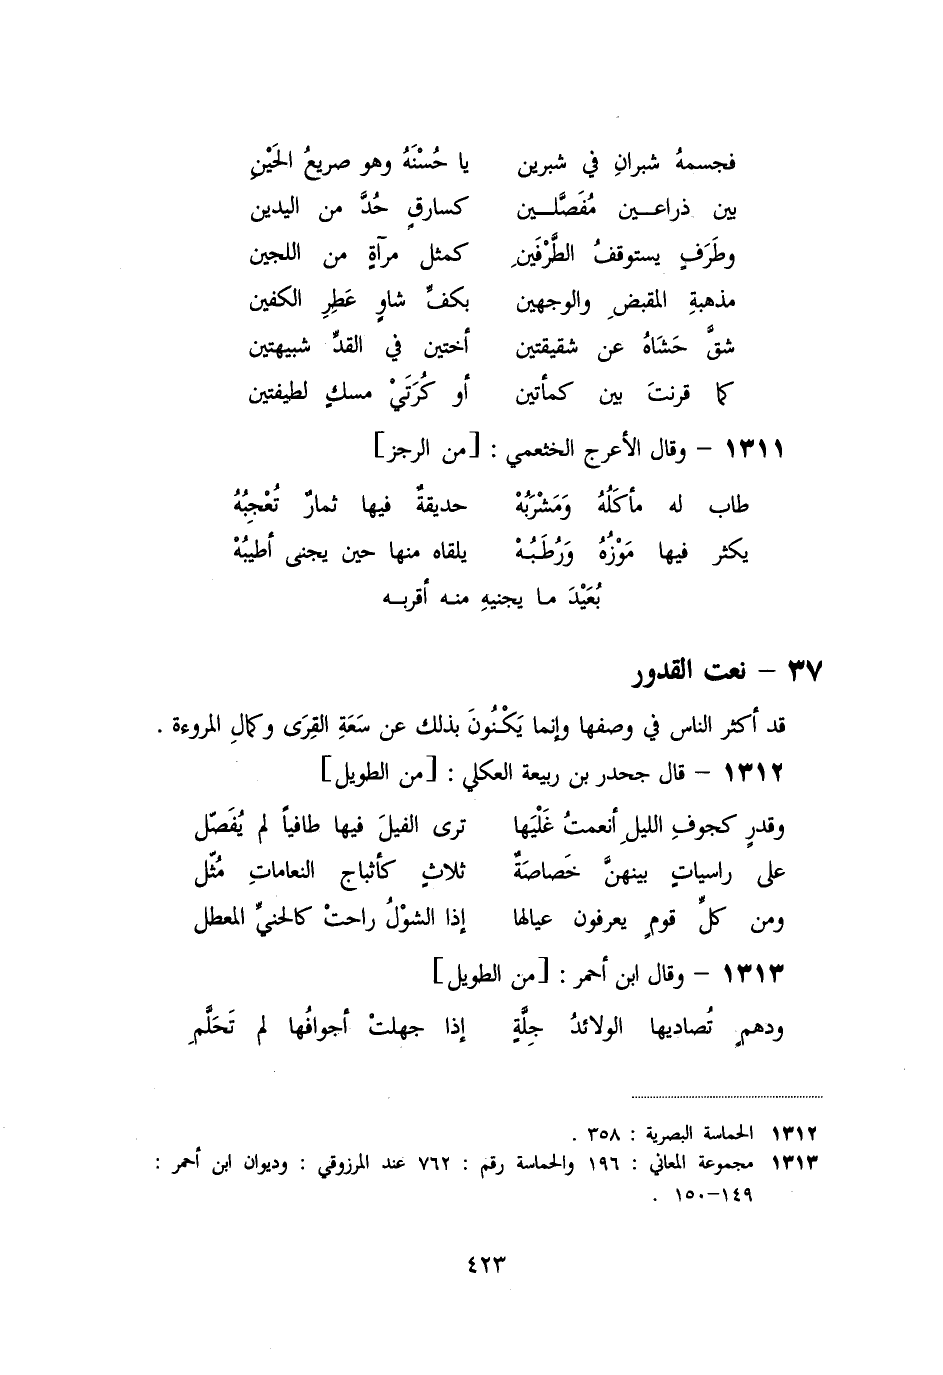 فجسمهُ شبرانِ في شبرين يا حُسْنَهُ وهو صريعُ الحَيْنِ
بين ذراعـــين مُفَصَّلـــين كسارقٍ حُدَّ من اليدين
وطَرَفٍ يستوقفُ الطَّرْفَينِ كمثل مرآةٍ من اللجين
مذهبةِ المقبضِ والوجهين بكفِّ شاوٍ عَطِرِ الكفين
شقَّ حَشَاهُ عن شقيقتين أختين في القدِّ شبيهتين
كما قرنتَ بين كمأتين أو كُرَتَيْ مسكٍ لطيفتين
١٣١١ – وقال الأعرج الخثعمي : [من الرجز]
طاب له مأكَلُهُ وَمَشْرَبُهْ حديقةٌ فيها ثمارٌ تُعْجِبُهُ
يكثر فيها مَوْزُهُ وَرُطَبُـهْ يلقاه منها حين يجنى أطيبُهْ
بُعَيْدَ مـا يجنيهِ منـه أقربـه
٣٧ – نعت القدور
قد أكثر الناس في وصفها وإنما يَكْنُونَ بذلك عن سَعَةِ القِرَى وكمالِ المروءة .
١٣١٢ – قال جحدر بن ربيعة العكلي : [من الطويل]
وقدرٍ كجوفِ الليلِ أنعمتُ غَلْيَها ترى الفيلَ فيها طافياً لم يُفَصّل
على راسياتٍ بينهنَّ خَصاصَةٌ ثلاثٍ كأثباج النعاماتِ مُثّل
ومن كلِّ قومٍ يعرفون عيالها إذا الشوْلُ راحتْ كالحنيِّ المعطل
١٣١٣ – وقال ابن أحمر : [من الطويل]
ودهمٍ تُصاديها الولائدُ جِلَّةٍ إذا جهلتْ أجوافُها لم تَحَلَّمِ
١٣١٢ الحماسة البصرية : ٣٥٨ .
١٣١٣ مجموعة المعاني : ١٩٦ والحماسة رقم : ٧٦٢ عند المرزوقي : وديوان ابن أحمر :
١٤٩–١٥٠ .
٤٢٣